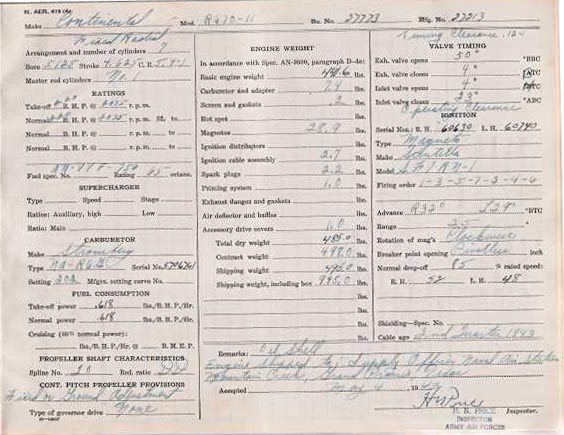 N. AER. 419 (A)
Make Continental Mod. R670-11 Bu. No. 27773 Mfg. No. 27213
Fixed Radial
Arrangement and number of cylinders 7
Bore 5.125 stroke 4.625 C. R. 5.4-1
Master rod cylinders No. 1
RATINGS
Take-off B. H. P. @ 2075 r. p. m.
Normal B. H. P. @ 2075 r. p. m. SL to
Normal B. H. P. @ r. p. m. to
Normal B. H. P. @ r. p. m. to
Fuel spec. No. Rating 65 octane.
SUPERCHARGER
Type Speed Stage
Ratios: Auxiliary, high Low
Ratio: Main
CARBURETOR
Make Stromberg
Type NA-R6G Serial No. 5706761
Setting Mfgrs. setting curve No.
FUEL CONSUMPTION
Take-off power .618 lbs./B. H. P./Hr.
Normal power .618 lbs./B. H. P./Hr.
Cruising (60% normal power):
lbs./B. H. P./Hr. @ B. M. E. P.
PROPELLER SHAFT CHARACTERISTICS
Spline No. 20 Red. ratio
CONT. PITCH PROPELLER PROVISIONS
Fixed or Ground Adjustment
Type of governor drive None
ENGINE WEIGHT
In accordance with Spec. AN-9500, paragraph D-4c:
Basic engine weight 441.6 lbs.
Carburetor and adapter 7.4 lbs.
Screen and gaskets .2 lbs.
Hot spot lbs.
Magnetos 28.9 lbs.
Ignition distributors lbs.
Ignition cable assembly 2.7 lbs.
Spark plugs 2.2 lbs.
Priming system 1.0 lbs.
Exhaust flanges and gaskets lbs.
Air deflector and baffles lbs.
Accessory drive covers 1.0 lbs.
Total dry weight 485.0 lbs.
Contract weight 498.0 lbs.
Shipping weight 495.0 lbs.
Shipping weight, including box 995.0 lbs.
Timing Clearance
VALVE TIMING
Exh. valve opens 50° °BBC
Exh. valve closes 4° °ATC
Inlet valve opens 4°
Inlet valve closes 23° °ABC
Operating Clearance
IGNITION
Serial Nos.: R. H. 60630 L. H. 60740
Type Magneto
Make Scintilla
Model
Firing order 1-3-5-7-2-4-6
Advance R32° L29° °BTC
Range 25
Rotation of mag's Clockwise
Breaker point opening inch
Normal drop-off 85 % rated speed:
R. H. 52 L. H. 48
Shielding—Spec. No.
Cable age 2nd Quarter 1943
Remarks: Oil Shell
Engine Shipped to: Supply Officer Naval Air Station
Mountain Creek, Grand Prairie, Texas
Accepted May 4 1944
H N Price
H. N. PRICE Inspector.
INSPECTOR
ARMY AIR FORCES